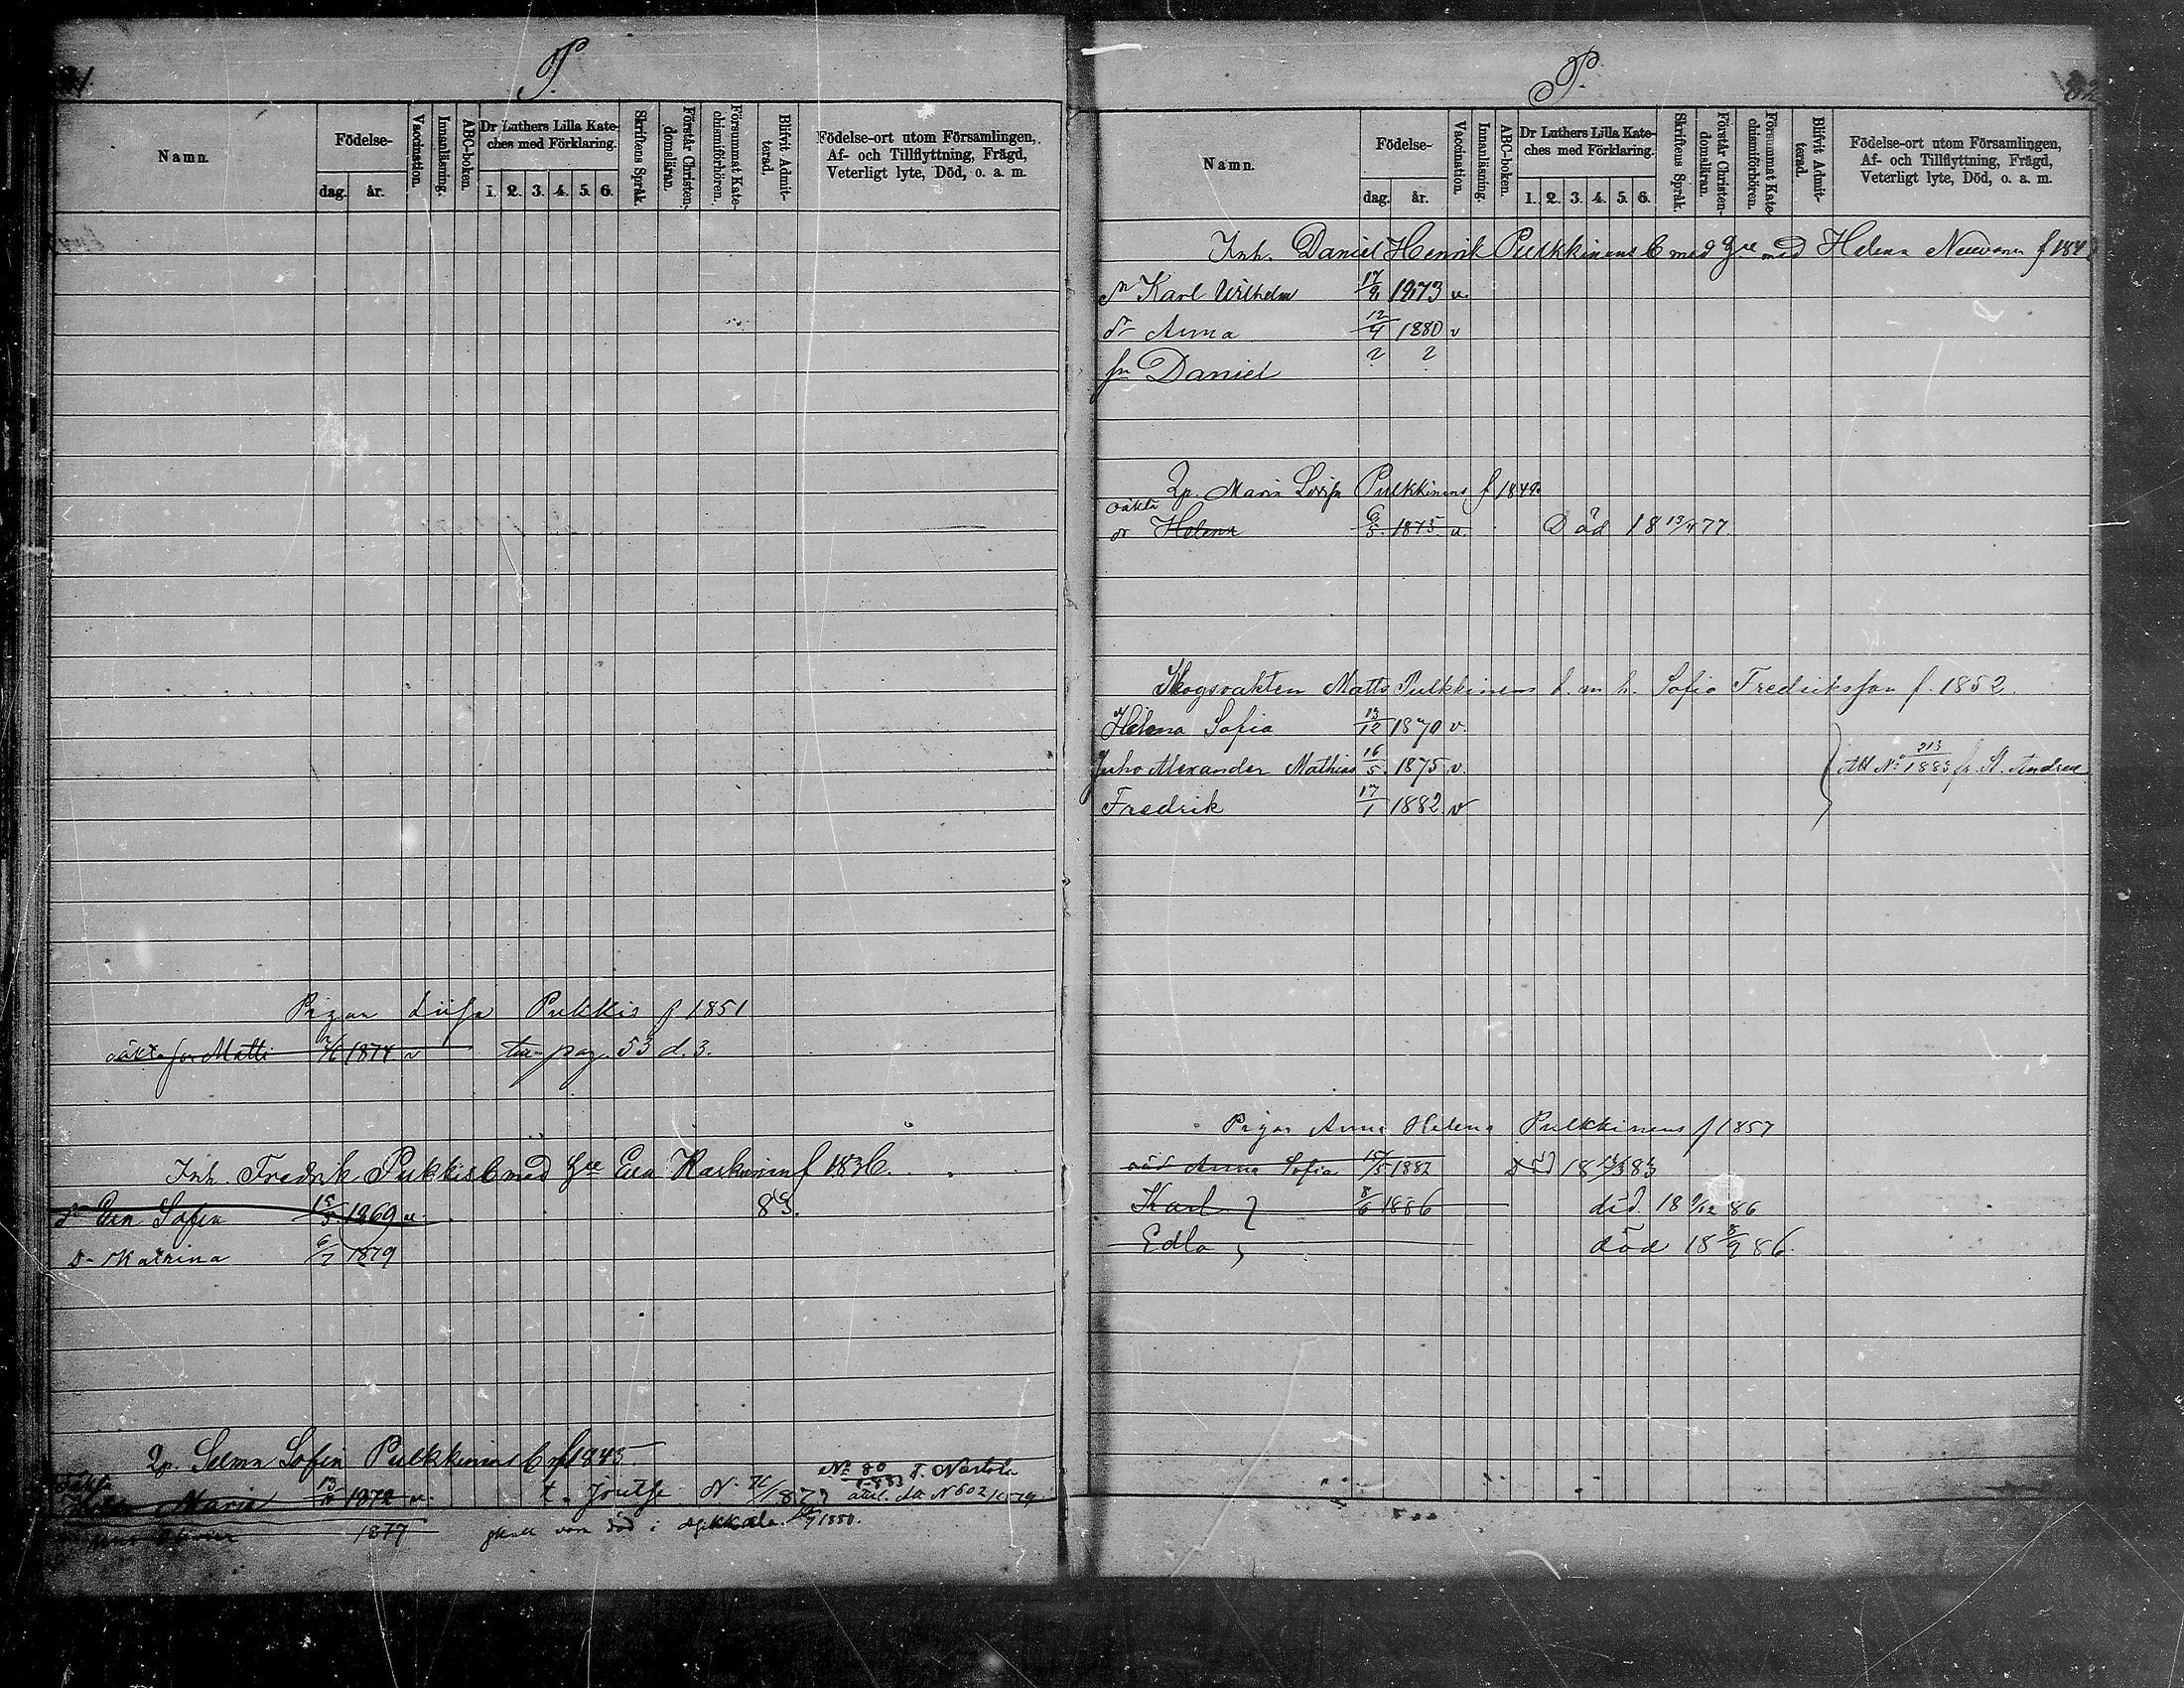 P.
Namn.
Födelse-
dag.
år.
Vaccination.
Innanläsning.
ABC-boken.
Dr Luthers Lilla Kate-
ches med Förklaring.
1. 2. 3. 4. 5. 6.
Skriftens Språk.
Förstår Christen-
domsläran.
Försummat Kate-
chismiförhören.
Blifvit Admit-
terad.
Födelse-ort utom Församlingen,
Af- och Tillflyttning, Frägd,
Veterligt lyte, Död, o. a. m.
Pigan Liisa Pukkis f 1851
oäkta sn Matti 1874 v pag. 53 d. 3.
Inh. Fredrik Pukkis med Eva f 1836.
dr Eva Sofia 15/5 1869 v. 83.
dr Katrina 6/7 1879
Selma Sofia Pulkkinens f 1845
Maria 13 1872 v. t. Joutse N. 1877 No 80 1883 t. Nastola
1877 skall vara död i 1880.
P.
82
Namn.
Födelse-
dag.
år.
Vaccination.
Innanläsning.
ABC-boken.
Dr Luthers Lilla Kate-
ches med Förklaring.
1. 2. 3. 4. 5. 6.
Skriftens Språk.
Förstår Christen-
domsläran.
Försummat Kate-
chismiförhören.
Blifvit Admit-
terad.
Födelse-ort utom Församlingen,
Af- och Tillflyttning, Frägd,
Veterligt lyte, Död, o. a. m.
Inh. Daniel Henrik Pulkkinens med Helena f 184
sn Karl Wilhelm 17/9 1873 v.
dr Anna 12/4 1880 v
sn Daniel 2 2
Maria Lovisa Pulkkinens f 1849
oäkta
dr Helena 6/5. 1875. v. Död 18 13/4 77.
Skogsvakten Matts Pulkkinens b. m. h. Sofia Fredriksson f. 1852.
Helena Sofia 13/12 1870 v.
Juho Alexander Mathias 16/5. 1875 v.
Att No 213/1883 fr. St. Andree
Fredrik 17/1 1882 v
Pigan Anna Helena Pulkkinens f 1857
Anna Sofia 15/5 1882 död 18 83
Karl } 8/6 1886 död. 18 9/12 86
Edla } död 18 8/9 86.